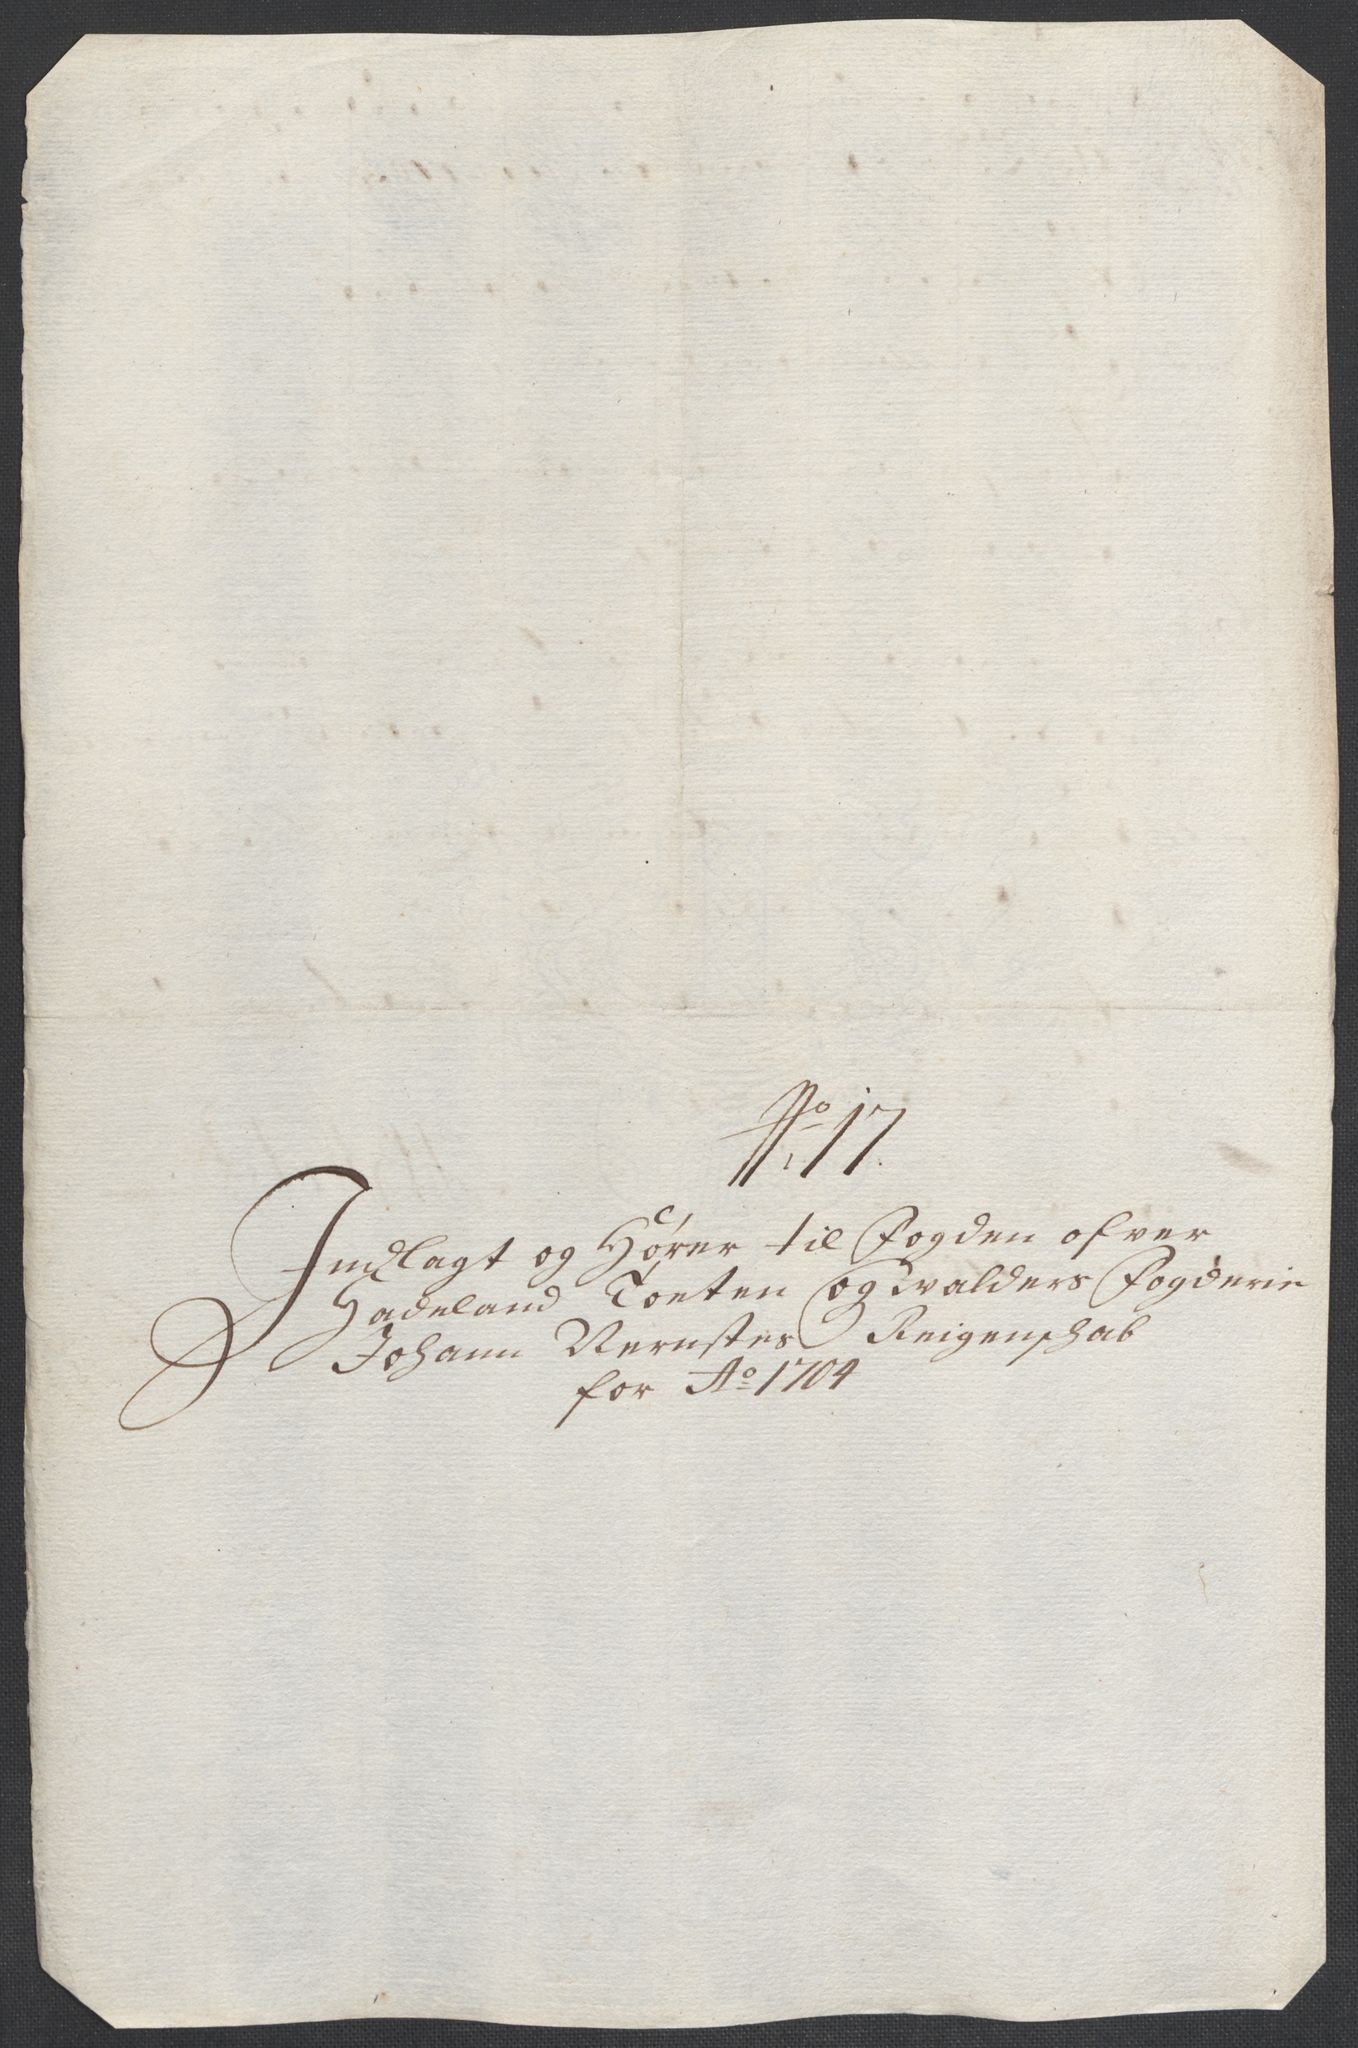 No. 17.
Indlagt og Hører til Fogden ofver
Hadeland Toeten og Walders Fogderie
Johann Vernstes Reigenschab
for Ao 1704